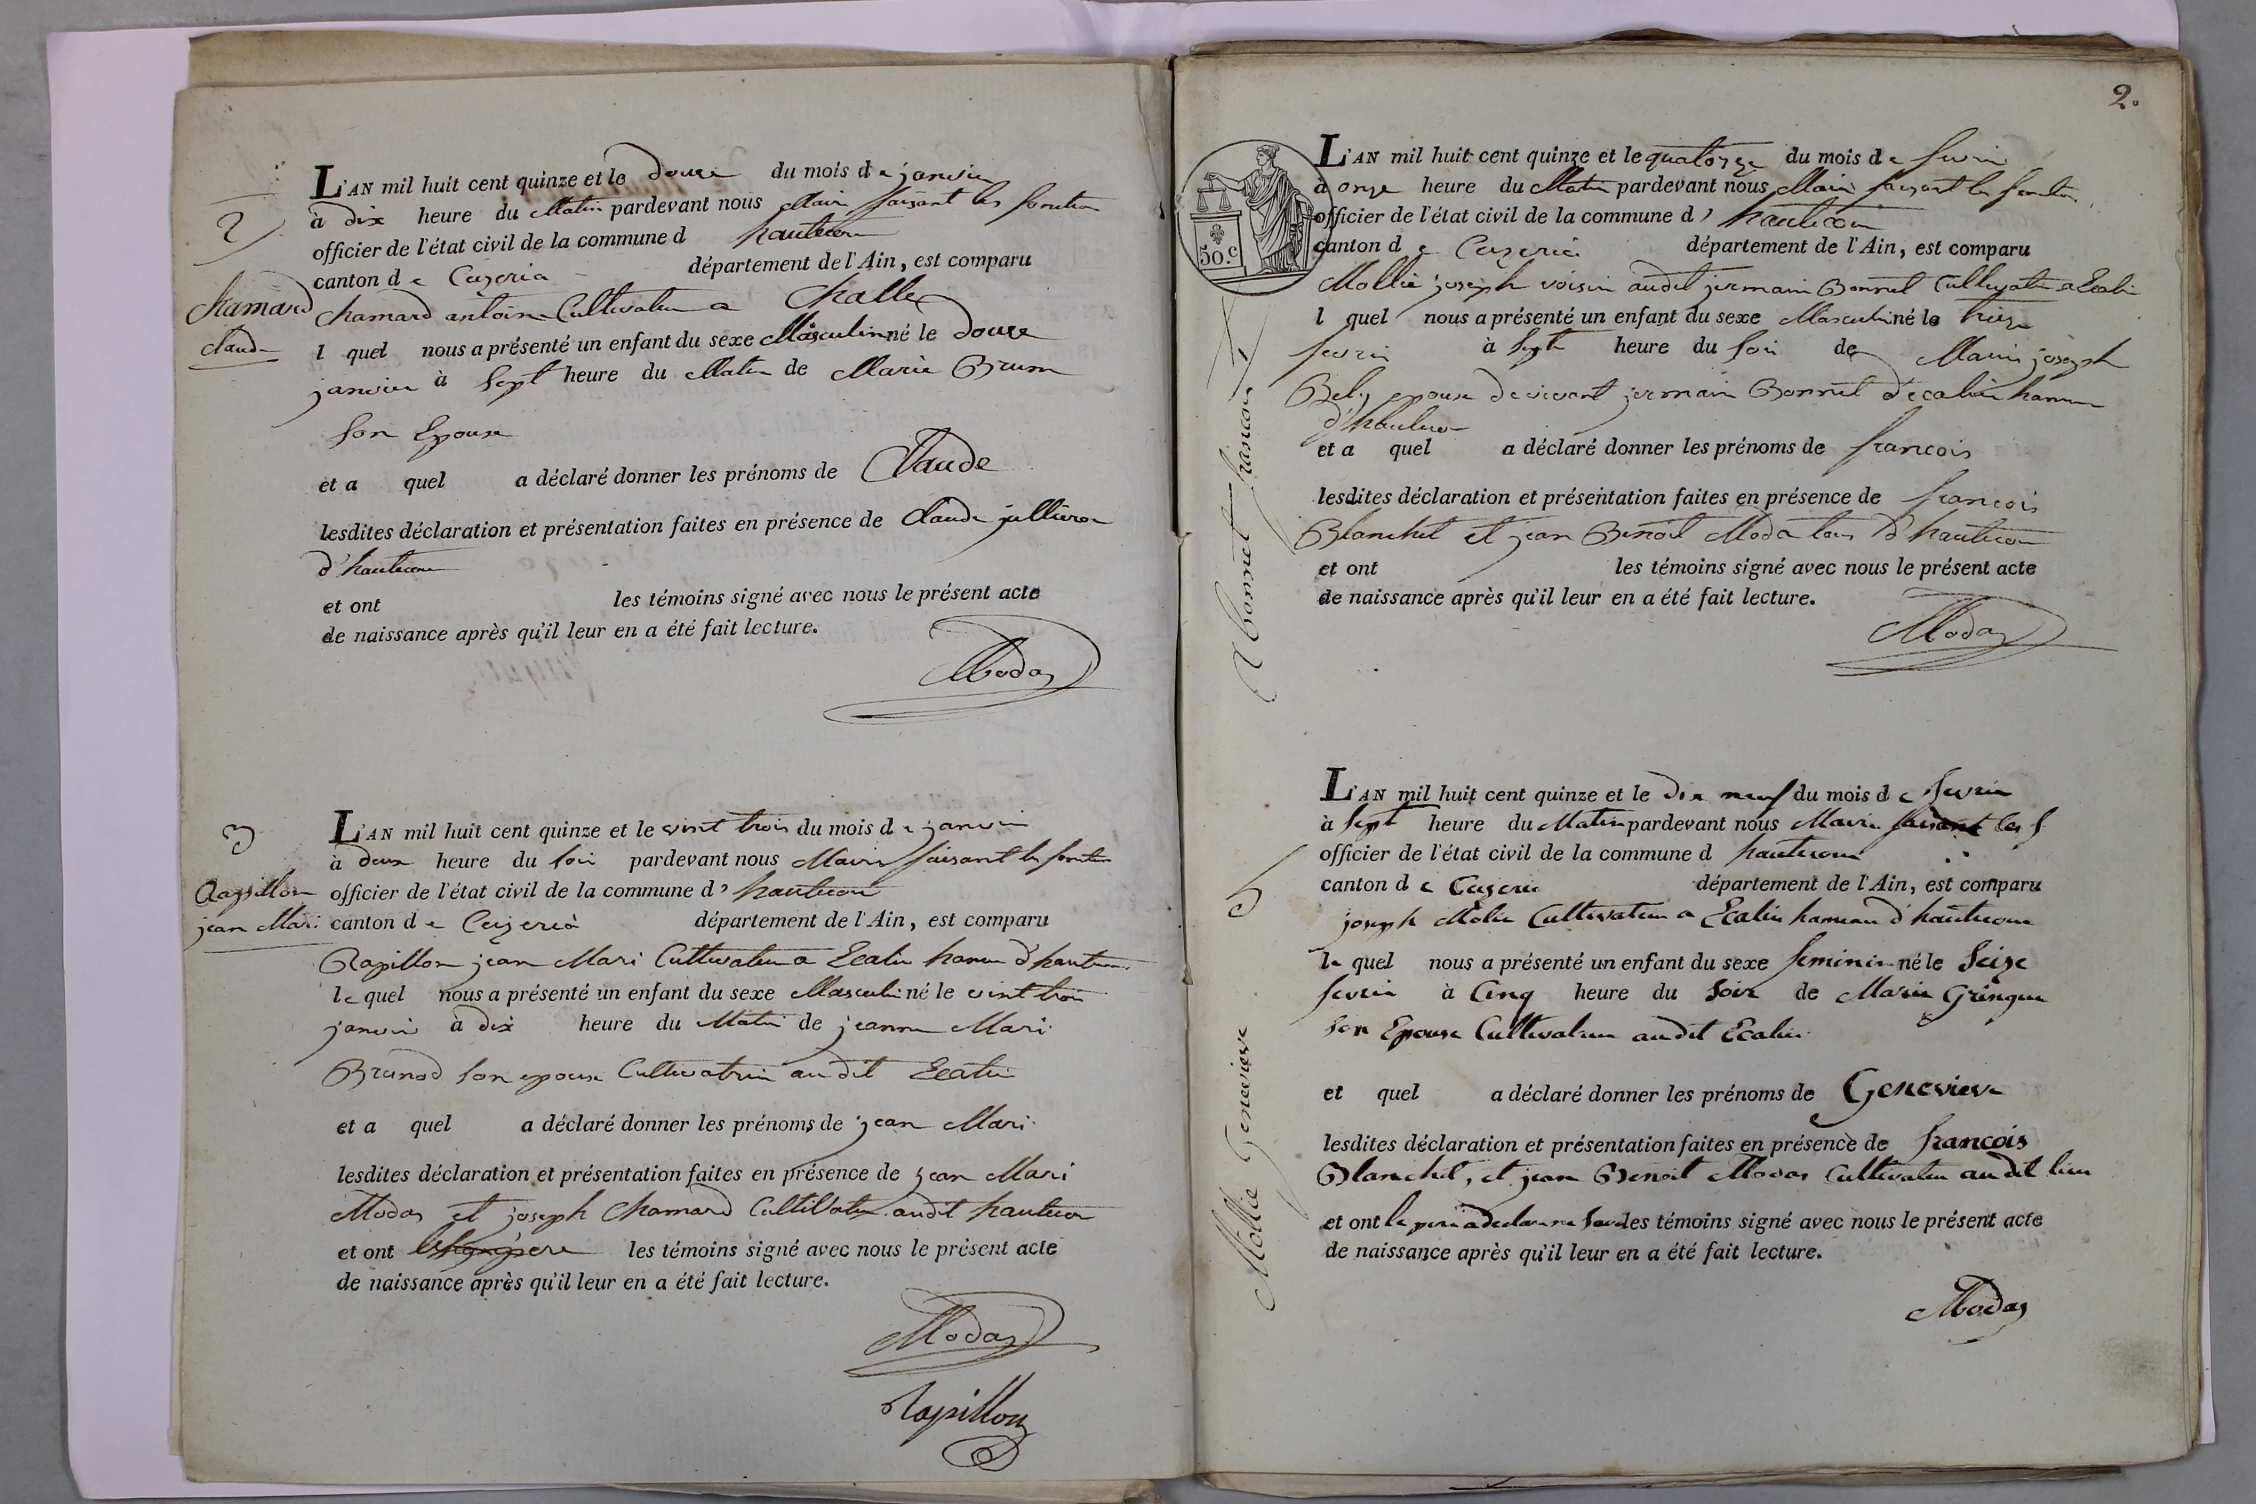 2
Chamard
Claude
L'AN mil huit cent quinze et le douze du mois de janvier
à dix heure du Matin pardevant nous Maire faisant les fonction
officier de l'état civil de la commune d hautecour
canton de Ceyzeria département de l'Ain, est comparu
Chamard antoine Cultivateur a Challe
l quel nous a présenté un enfant du sexe Masculin né le douze
janvier à Sept heure du Matin de Marie Brun
Son Epouse
et a quel a déclaré donner les prénoms de Claude
lesdites déclaration et présentation faites en présence de Claude jullieron
d'hautecour
et ont les témoins signé avec nous le présent acte
de naissance après qu'il leur en a été fait lecture.
Modas
3
Rapillon
jean Mari
L'AN mil huit cent quinze et le vint trois du mois de janvier
à deux heure du Soir pardevant nous Maire faisant les fonction
officier de l'état civil de la commune d' hautecour
canton de Ceyzeria département de l'Ain, est comparu
Rapillon jean Mari Cultivateur a Ecalin hameau d'hautecour
le quel nous a présenté un enfant du sexe Masculin né le vint trois
janvier à dix heure du Matin de jeanne Mari
Brunod Son epouse Cultivatrice au dit Ecalin
et a quel a déclaré donner les prénoms de jean Mari
lesdites déclaration et présentation faites en présence de jean Mari
Modas et joseph Chamard Cultivateur audit hautecour
et ont les témoins signé avec nous le présent acte
de naissance après qu'il leur en a été fait lecture.
Modas
Rapillon
2.
50.c
4 Bonnet francois
L'AN mil huit cent quinze et le quatorze du mois de fevrier
à onze heure du Matin pardevant nous Maire faisant les fonction
officier de l'état civil de la commune d' hautecour
canton de Ceyzeria département de l'Ain, est comparu
Mollie joseph voisin audit jermain Bonnet Cultivateur a Ecalin
l quel nous a présenté un enfant du sexe Masculin né le treize
fevrier à Sept heure du Soir de Marie joseph
Bely epouse de vivant jermain Bonnet d'ecalin hameau
d'hautecour
et a quel a déclaré donner les prénoms de francois
lesdites déclaration et présentation faites en présence de francois
Blanchet et jean Benoit Modas tous d'hautecour
et ont les témoins signé avec nous le présent acte
de naissance après qu'il leur en a été fait lecture.
Modas
5 Mollie Genevieve
L'AN mil huit cent quinze et le dix neuf du mois de fevrier
à Sept heure du Matin pardevant nous Maire faisant les f
officier de l'état civil de la commune d hautecour
canton de Ceyzeria département de l'Ain, est comparu
joseph Molie Cultivateur a Ecalin hameau d'hautecour
le quel nous a présenté un enfant du sexe feminin né le Seize
fevrier à Cinq heure du Soir de Marie
Son Epouse Cultivatrice audit Ecalin
et quel a déclaré donner les prénoms de Genevieve
lesdites déclaration et présentation faites en présence de francois
Blanchet, et jean Benoit Modas Cultivateur au dit lieu
et ont le pere a declare ne les témoins signé avec nous le présent acte
de naissance après qu'il leur en a été fait lecture.
Modas